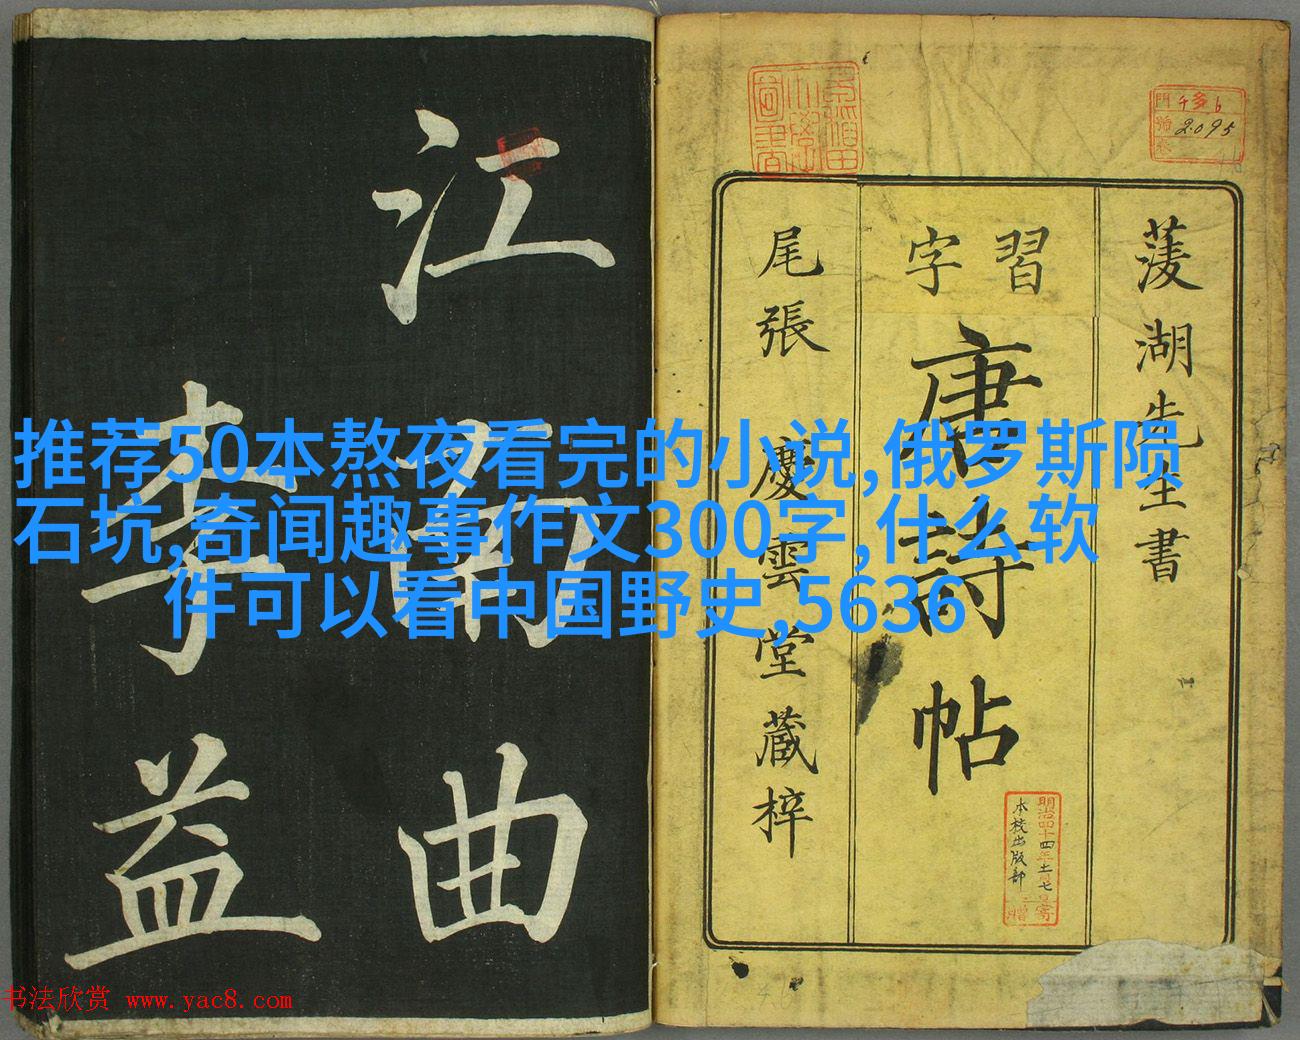 江南曲
李益
菱湖先生書
習字
唐詩帖
尾張 慶雲堂藏梓
早稲田大學圖書
門 チ多6
號 2095
卷
明治四十四年十一月七日寄贈
本校出版部
推荐50本熬夜看完的小说,俄罗斯陨
石坑,奇闻趣事作文300字,什么软
件可以看中国野史,5636
书法欣赏 www.yac8.com